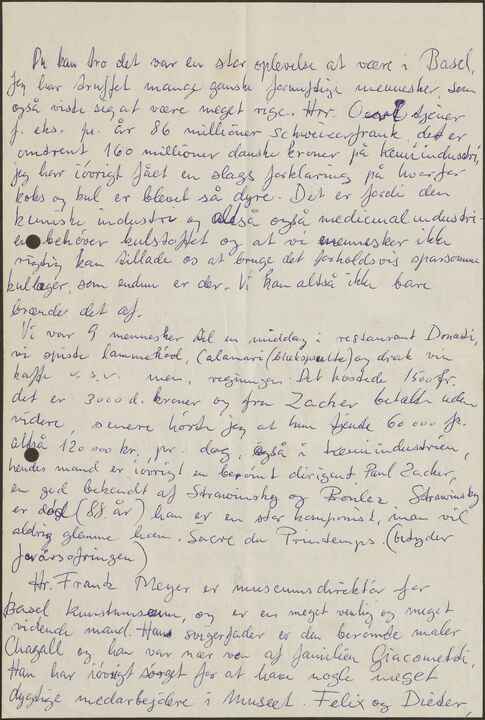 Du kan tro det var en stor oplevelse at være i Basel,
jeg har truffet mange ganske fornuftige mennesker, som
også viste sig at være meget rige. Hrr. tjener
f. eks. pr. år 86 millioner schweizerfrank det er
omtrent 160 millioner danske kroner på kemiindustri,
jeg har iövrigt fået en slags forklaring på hvorfor
koks og kul er blevet så dyre. Det er fordi den
kemiske industri og altså også medicinalindustri-
en behöver kulstoffet og at vi mennesker ikke
rigtig kan tillade os at bruge det forholdsvis sparsomme
kullager, som endnu er der. Vi kan altså ikke bare
brænde det af.
Vi var 9 mennesker til en middag i restaurant Donati,
vi spiste lammekød, Calamari (blæksprutte) og drak vin
kaffe u.s.v. men, regningen det kostede 1500 fr.
det er 3000 d. kroner og fru Zacher betalte uden
videre, senere hörte jeg at hun tjende 60 000 fr.
altså 120 000 kr. pr. dag, også i kemiindustrien,
hendes mand er iövrigt en berømt dirigent Paul Zacher,
en god bekendt af Strawinsky og Boulez. Strawinsky
er død (88 år) han er en stor komponist, man vil
aldrig glemme ham. Sacre du Printemps. (betyder
forårsofringen)
Hr. Frank Meyer er museumsdirektör for
Basel kunstmuseum, og er en meget venlig og meget
vidende mand. Hans svigerfader er den berømde maler
Chagall og han var nær ven af familien Giacometti,
Han har iövrigt sorget for at have nogle meget
dygtige medarbejdere i Museet. Felix og Dieter,